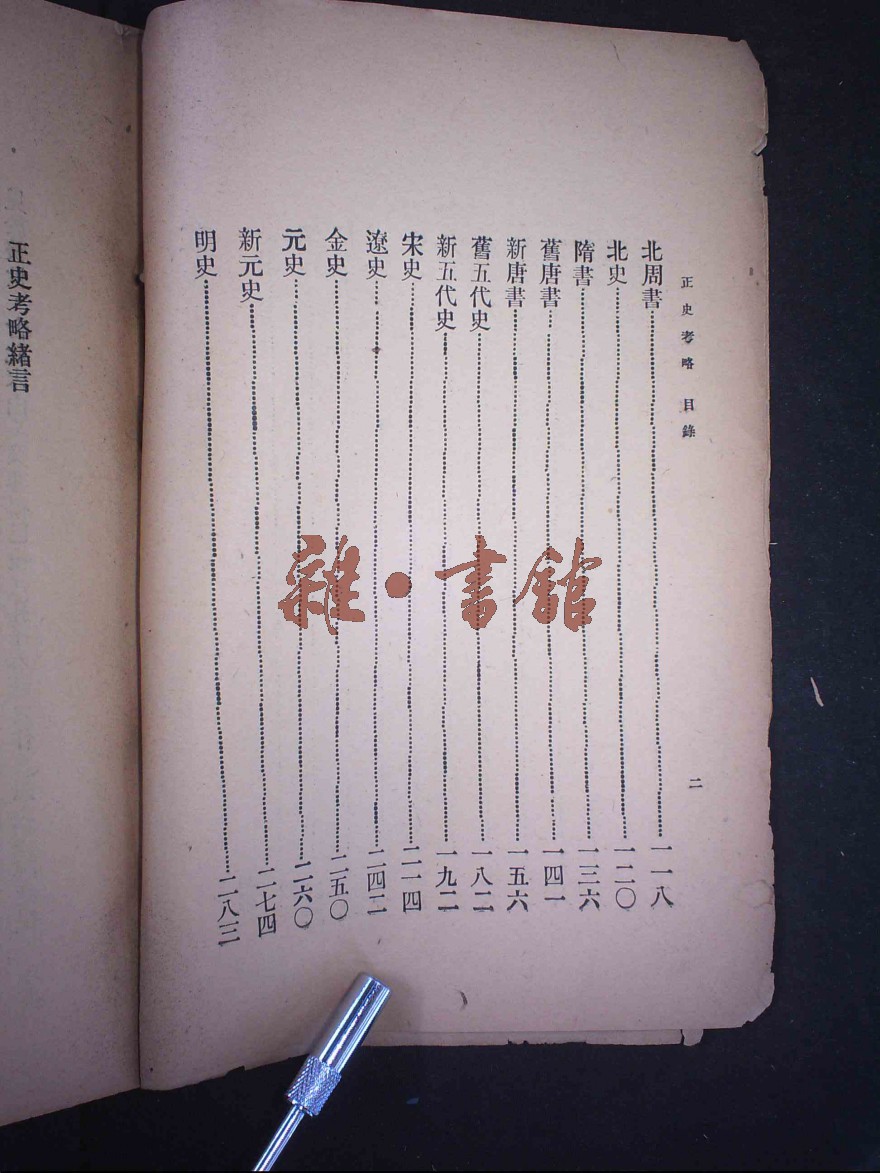 正史考略　目錄
二
北周書……一一八
北史……一二〇
隋書……一三六
舊唐書……一四一
新唐書……一五六
舊五代史……一八二
新五代史……一九二
宋史……二一四
遼史……二四二
金史……二五〇
元史……二六〇
新元史……二七四
明史……二八三
正史考略緒言
雜·書館